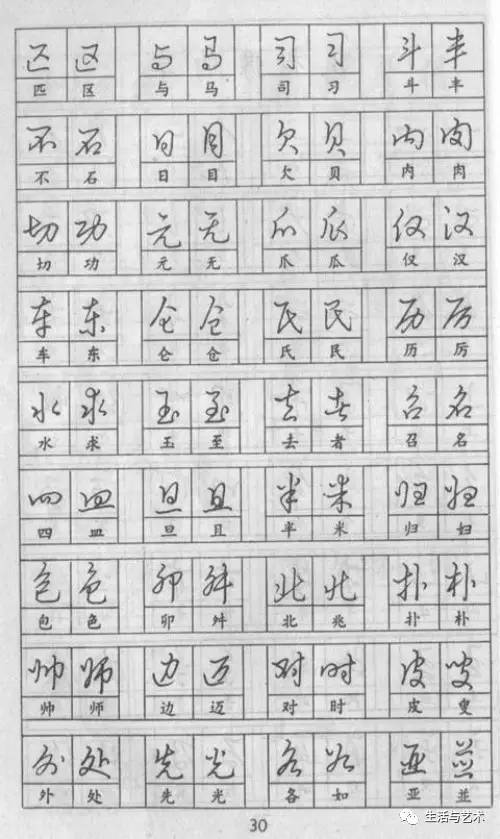 匹 区 与 马 司 习 斗 丰
匹 区 与 马 司 习 斗 丰
不 石 日 目 欠 贝 内 肉
不 石 日 目 欠 贝 内 肉
切 功 元 无 爪 瓜 仅 汉
切 功 元 无 爪 瓜 仅 汉
车 东 仑 仓 氏 民 历 厉
车 东 仑 仓 氏 民 历 厉
水 求 玉 至 去 者 召 名
水 求 玉 至 去 者 召 名
四 皿 旦 且 半 米 归 妇
四 皿 旦 且 半 米 归 妇
包 色 卯 舛 北 兆 扑 朴
包 色 卯 舛 北 兆 扑 朴
帅 师 边 迈 对 时 皮 叟
帅 师 边 迈 对 时 皮 叟
外 处 先 光 各 如 亚 並
外 处 先 光 各 如 亚 並
30
生活与艺术